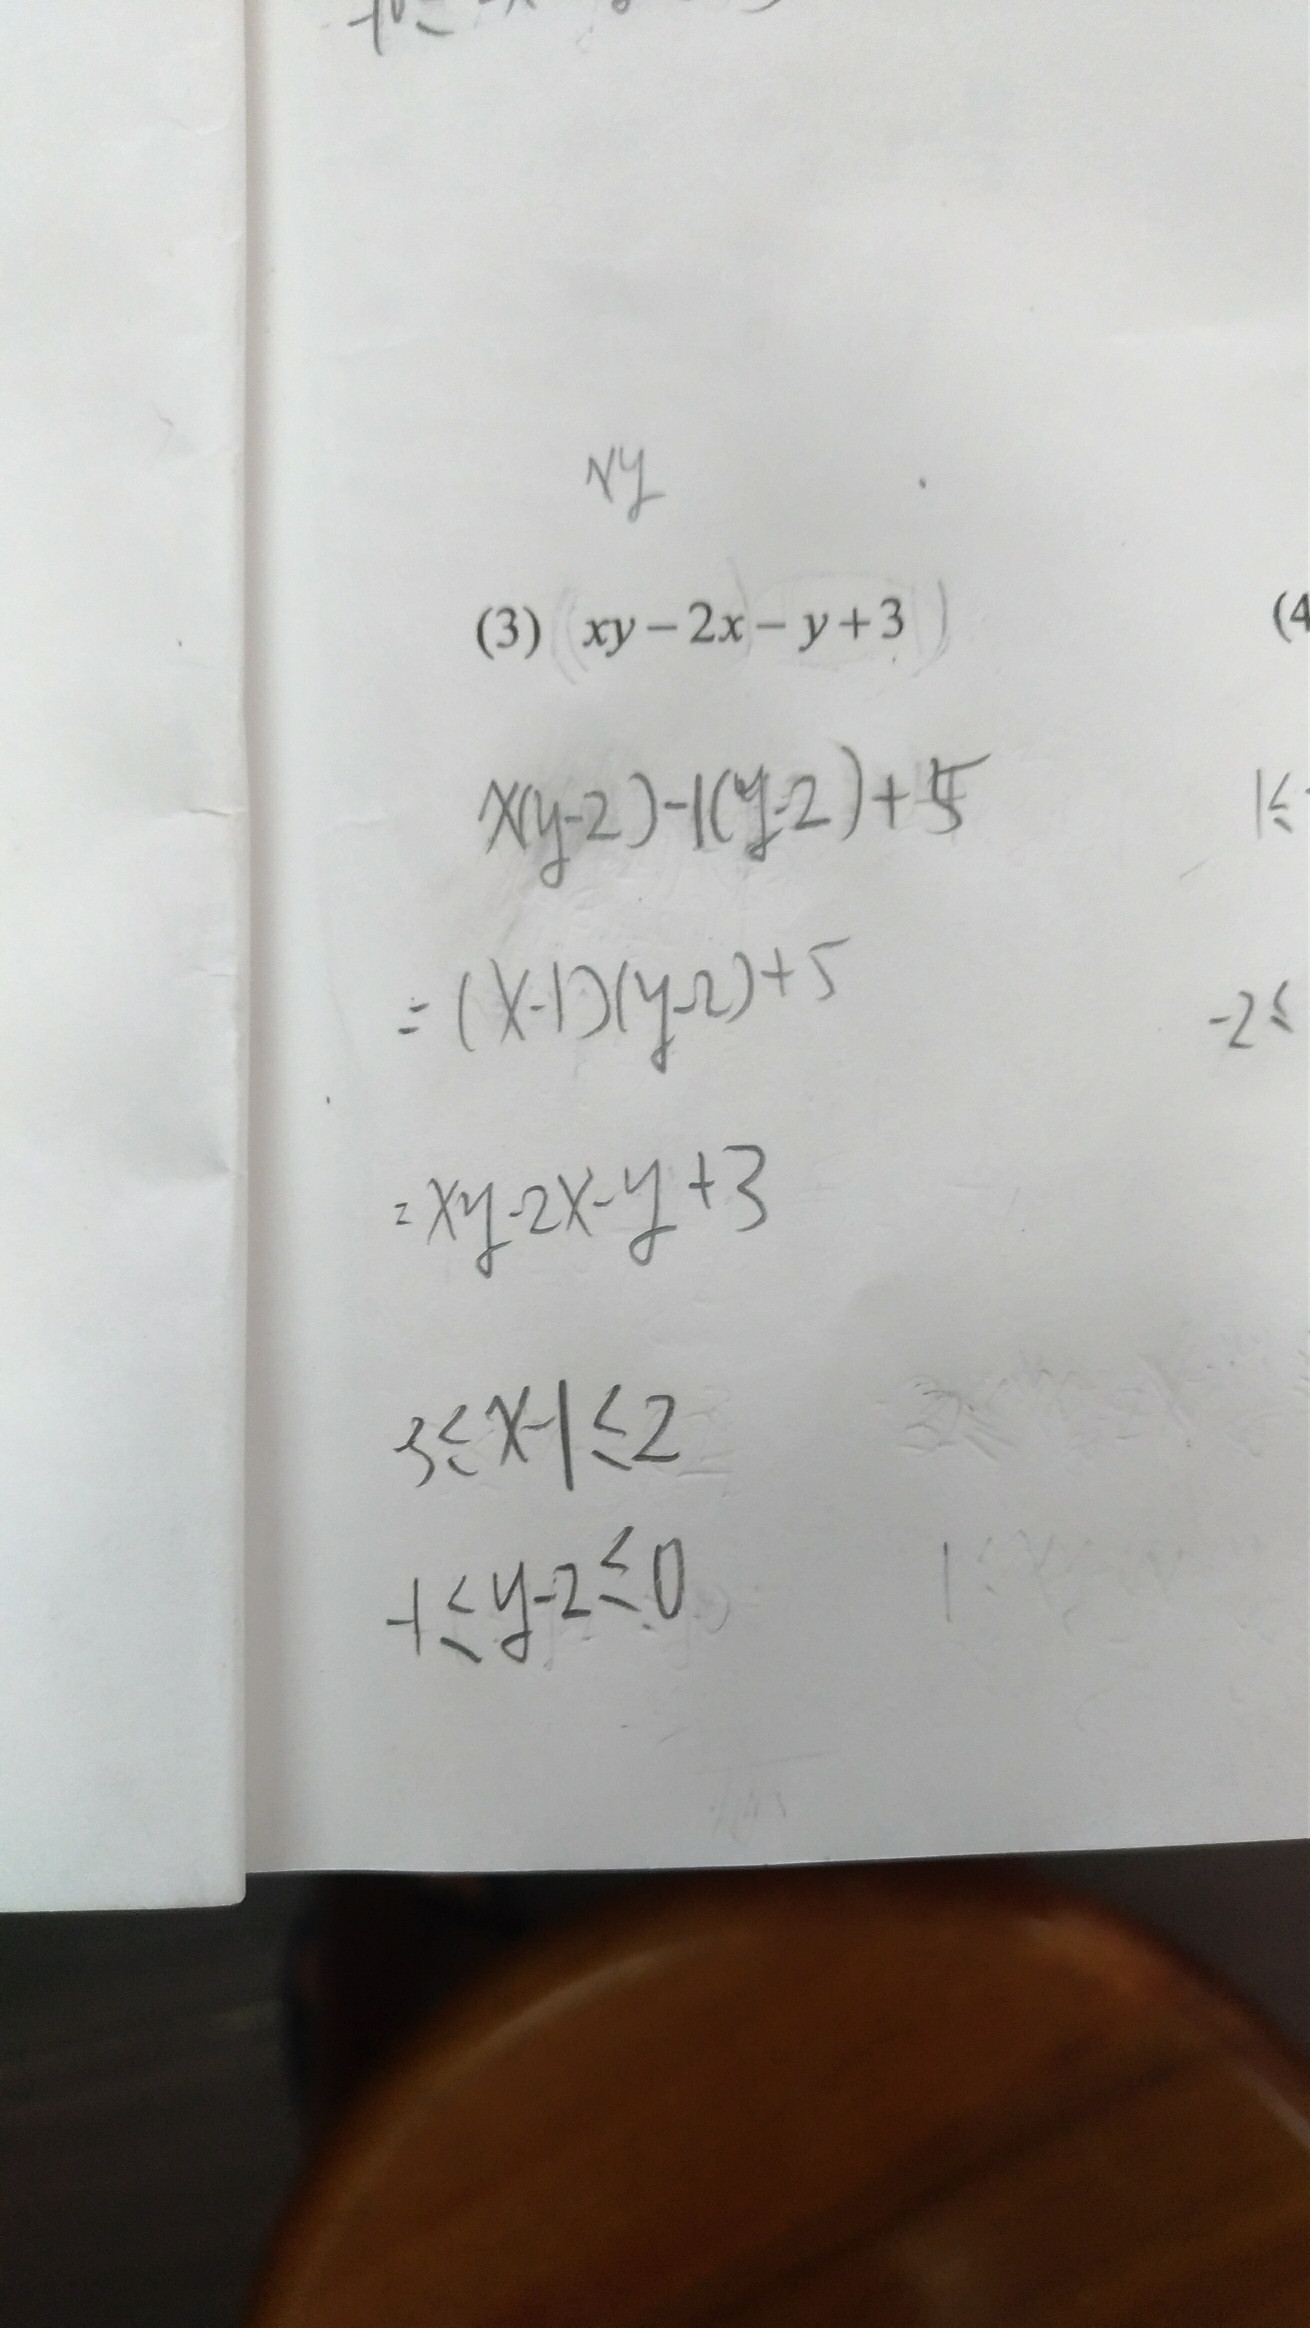 xy
(3) xy-2x-y+3
(4
x(y-2)-1(y-2)+5
1≤
=(x-1)(y-2)+5
-2≤
=xy-2x-y+3
3≤x-1≤2
-1≤y-2≤0